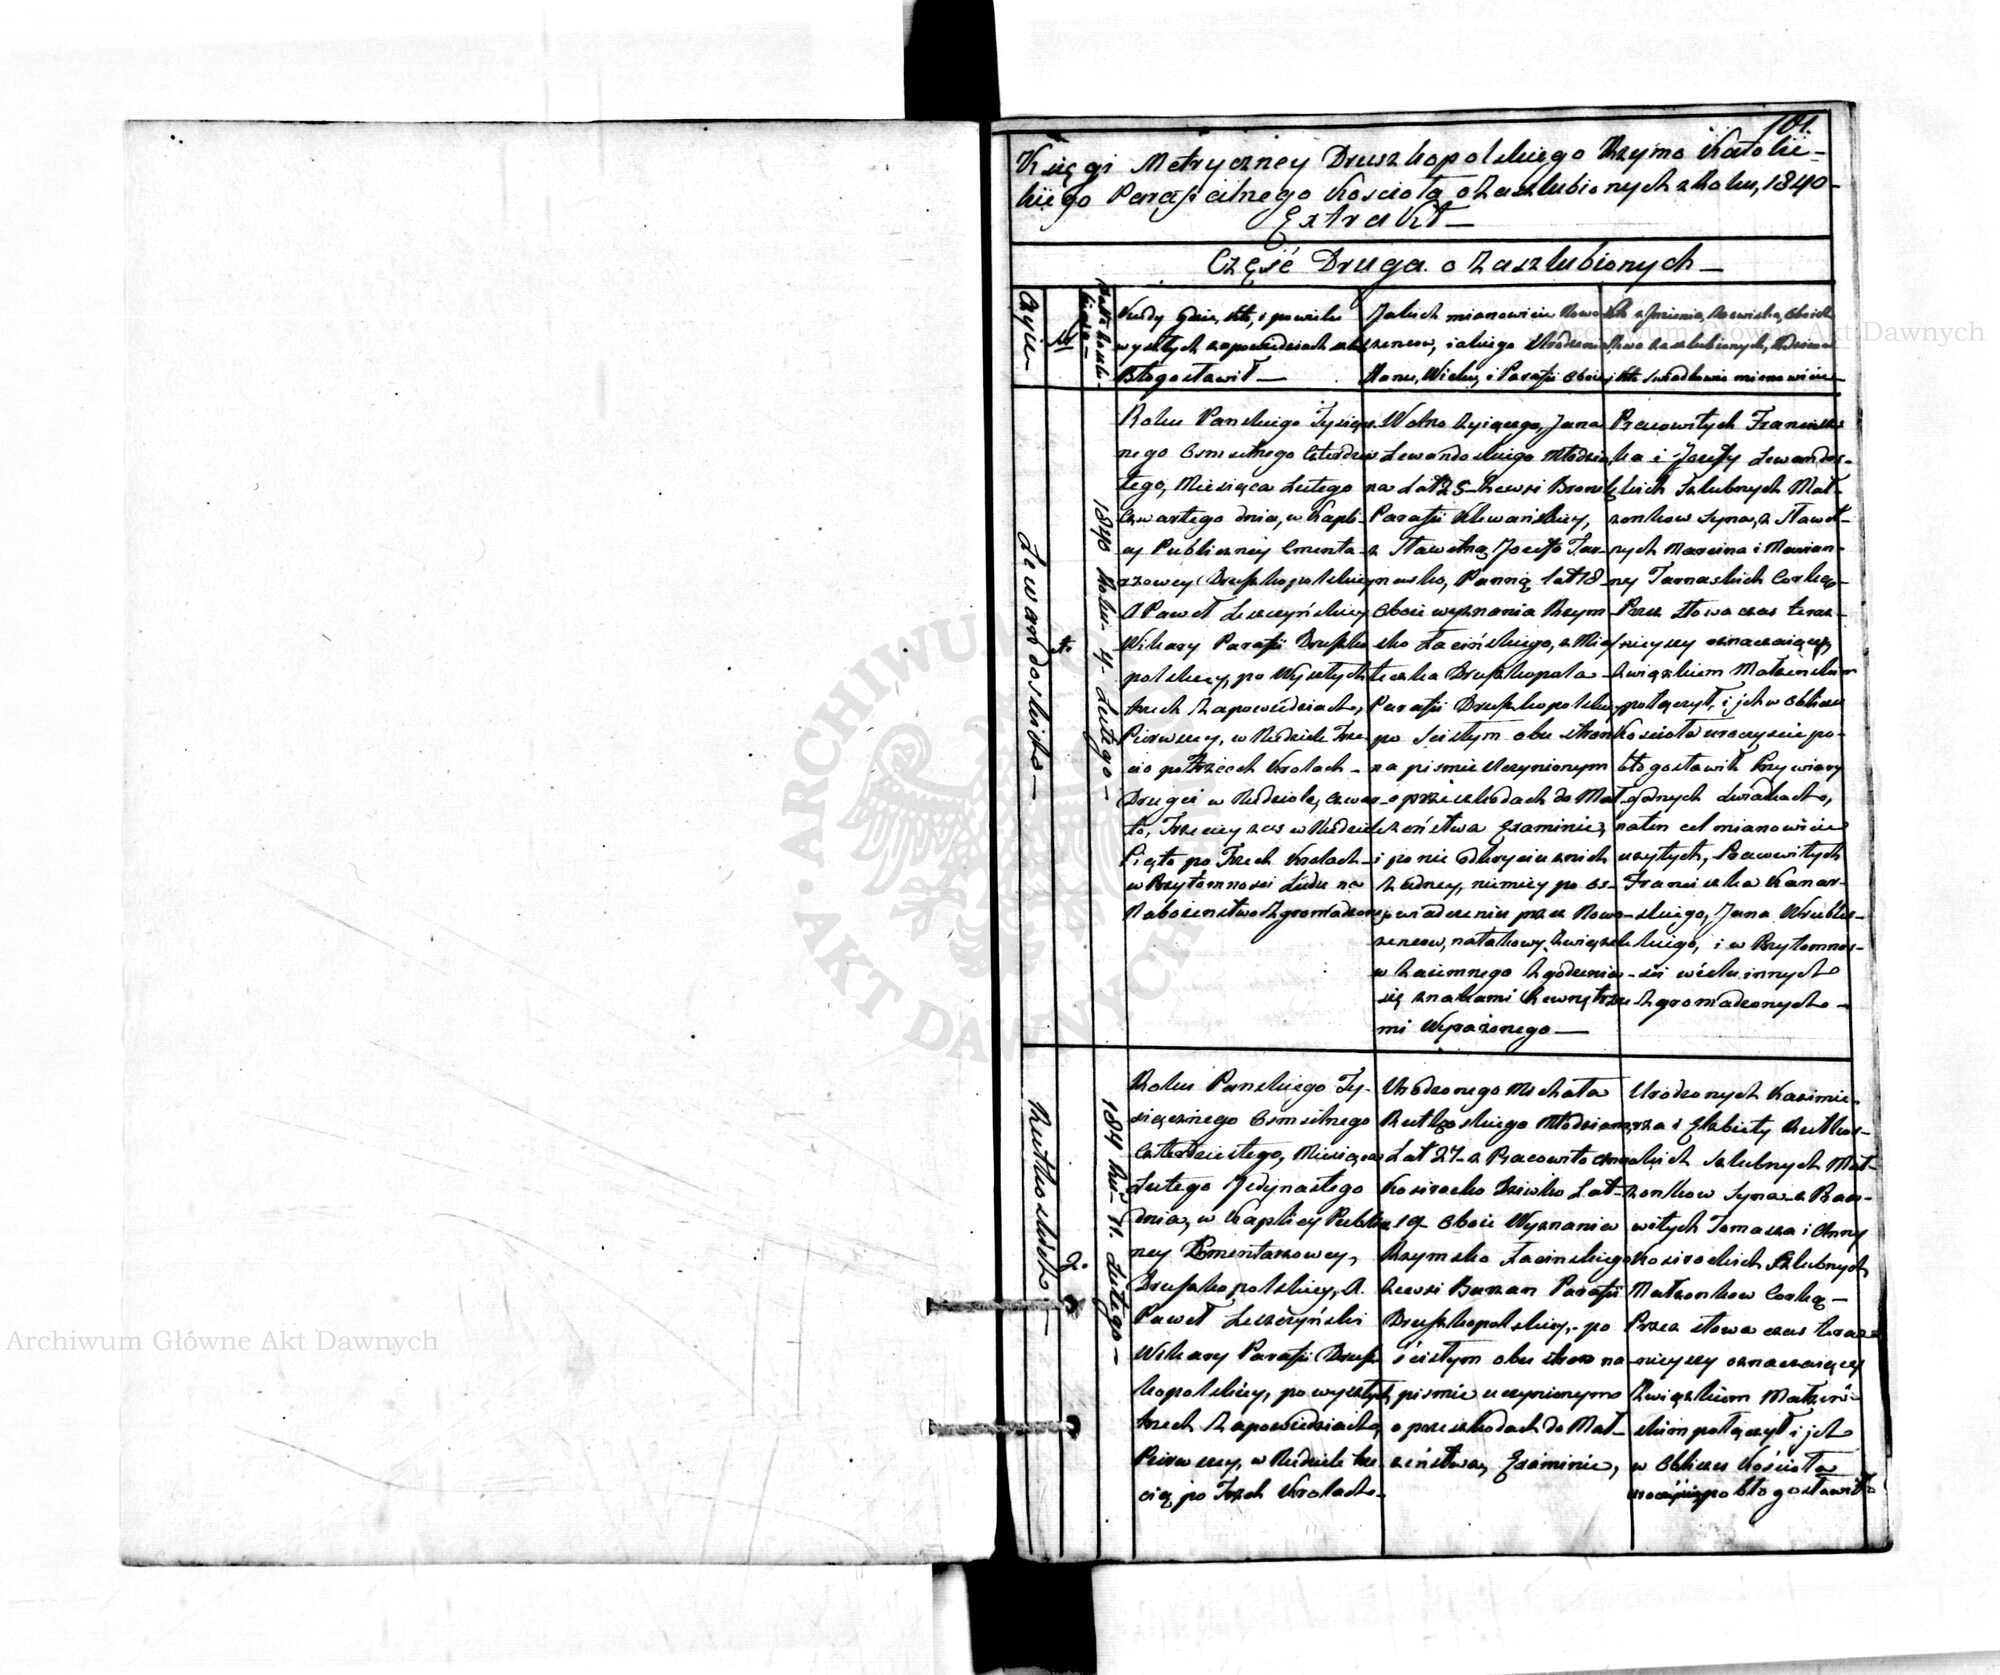 101.
Księgi Metryczney Druszkopolskiego Rzymo Katolic-
kiego Parafialnego Kościoła o Zaszlubionych z Roku, 1840-
Extrakt -
Część Druga. o Zaszlubionych -
Czyie -
N
Kiedy Gdzie, Kto, i po wielu
wyszłych zapowiedziach
Błogosławił -
Jakich mianowicie Nowo
żencow, iakiego Urodzenia
Stanu, Wieku, i Parafii Oboie
Imienia, Nazwiska, Oboich
zaszlubionych, Rodzicow
Kto Swiadkowie mianowicie -
Lewandoskich -
1.
1840 Roku 4 Lutego -
Roku Panskiego Tysiącz
nego Osmsetnego Czterdzies
tego, Miesiąca Lutego
Czwartego dnia, w Kapli-
cy Publiczney Cmenta-
rzowey Druszkopolskiey
X Paweł Leszczyński
Wikary Parafii Druszko
polskiey, po Wyszłych
trzech Zapowiedziach,
Pierwszey, w Niedziele Trze-
cio po Trzech Krolach -
Drugiei w Niedziole, czwar-
to, Trzeciey zas w Niedziele
Piąto po Trzech Krolach -
w Przytomnosci Ludu na
Nabożenstwo Zgromadzone
Wolno Zyiącego, Jana
Lewandoskiego Młodzia
na Lat 25 - Zewsi
Parafii Klewańskiey,
z Sławetną Jozefo Tar-
nasko, Panną lat 18 -
Oboie wyznania Rzym
sko Łacińskiego, z Mia
steczka Druszkopola -
Parafii Druszkopolskiey
po Scisłym obu stron
na pismie Uczynionym
o przeszkodach do Mał-
zeństwa Examinie,
i po nie odkryciu znich
Zadney, niemiey po os-
wiadczeniu przez Nowo-
zencow, natakowy Związek
wzaiemnego Zgodzenia
się znakami Zewnętrzne-
mi Wyrażonego -
Pracowitych Francisz
ka i Jozefy Lewandos-
kich Szlubnych Mał-
zonkow Syna, z Sławet-
nych Marcina i Marian-
ny Tarnaskich Corką -
Przez Słowa czas teraz-
nieyszy oznaczaiące,
Związkiem Małzenskim
połączył, i ich w Obliczu
Kosciola uroczyscie po-
błogosławił Przy wiary
godnych Swiadkach,
naten cel mianowicie
uzytych, Pracowitych
Franciszka Kanar-
skiego, Jana Wrublew-
skiego, i w Przytomnos-
ci wielu innych
Zgromadzonych -
Rutkoskich -
2.
11. Lutego -
Roku Panskiego Ty-
siącznego Osmsetnego
Czterdziestego, Miesiąca
Lutego Jedynastego
dnia, w Kaplicy Publicz
ney Cmentarzowey,
Druszkopolskiey, X.
Paweł Leszczyński
Wikary Parafii Drusz
kopolskiey, po wyszłych
trzech Zapowiedziach,
Pierwszey, w Niedziele trze-
cią po Trzech Krolach -
Urodzonego Michała
Rutkoskiego Młodziana
Lat 27 - z Pracowito
Kosirocko Dziwko Lat -
19 Oboie Wyznania
Rzymsko Łacinskiego
Zewsi Buzan Parafii
Druszkopolskiey, - po
ścisłym obu stron na
pismie uczynionym
o przeszkodach do Mał-
zeństwa, Examinie,
Urodzonych Kazimie-
rza i Elzbiety Rutkos-
kich Szlubnych Mał-
zonkow Syna z Praco-
witych Tomasza i Anny
Kosirockich Szlubnych
Małzonkow Corką -
Przez słowa czas teraz
nieyszy oznaczaiący
Związkiem Małzeń-
skim połączył i ich
w Obliczu Kościoła
pobłogosławił
Archiwum Główne Akt Dawnych
Archiwum Główne Akt Dawnych
ARCHIWUM GŁÓWNE AKT DAWNYCH